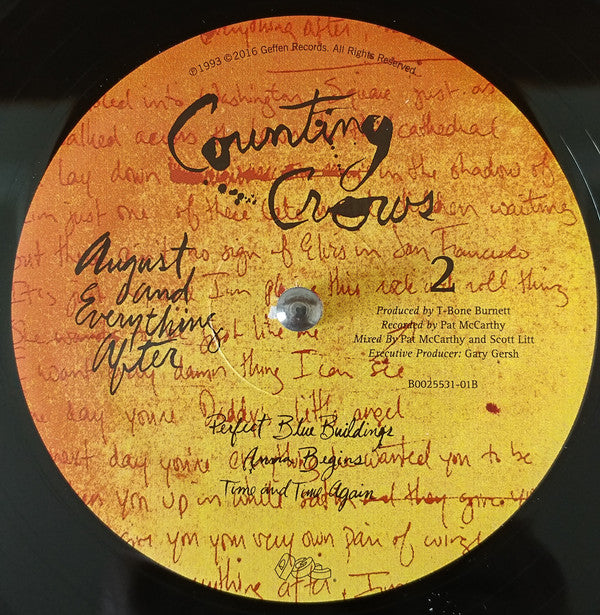 everything after,
℗1993 ©2016 Geffen Records. All Rights Reserved.
into Washington Square just as
walked across the cathedral
lay down in the shadow of
I'm just one of these waiting
out there no sign of Elvis in San Francisco
this rock and roll thing
Counting
Crows
August
and
Everything
After
2
Produced by T-Bone Burnett
Recorded by Pat McCarthy
Mixed By Pat McCarthy and Scott Litt
Executive Producer: Gary Gersh
B0025531-01B
like me
want every damn thing I can see
day you're Daddy's little angel
Perfect Blue Buildings
next day you're wanted you to be
Anna Begins
you up in white and they give
Time and Time Again
give you your very own pair of wings
everything after, I'm